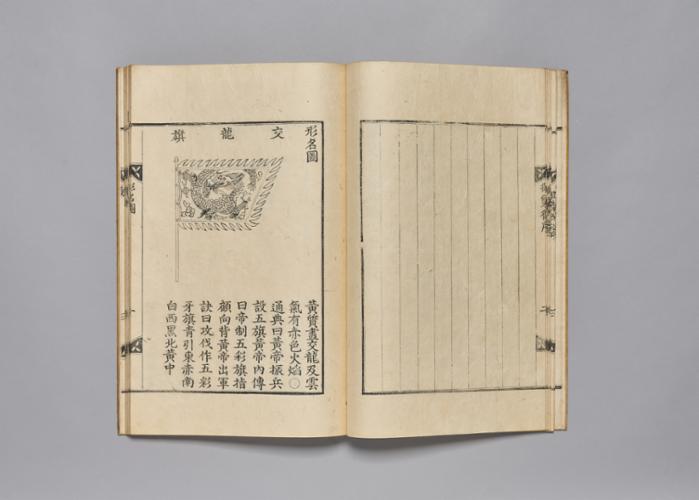 形名圖
交龍旗
黃質畫交龍及雲
氣有赤色火焰○
通典曰黃帝振兵
設五旗黃帝內傳
曰帝制五彩旗指
顧向背黃帝出軍
訣曰攻伐作五彩
牙旗青引東赤南
白西黑北黃中
形名圖